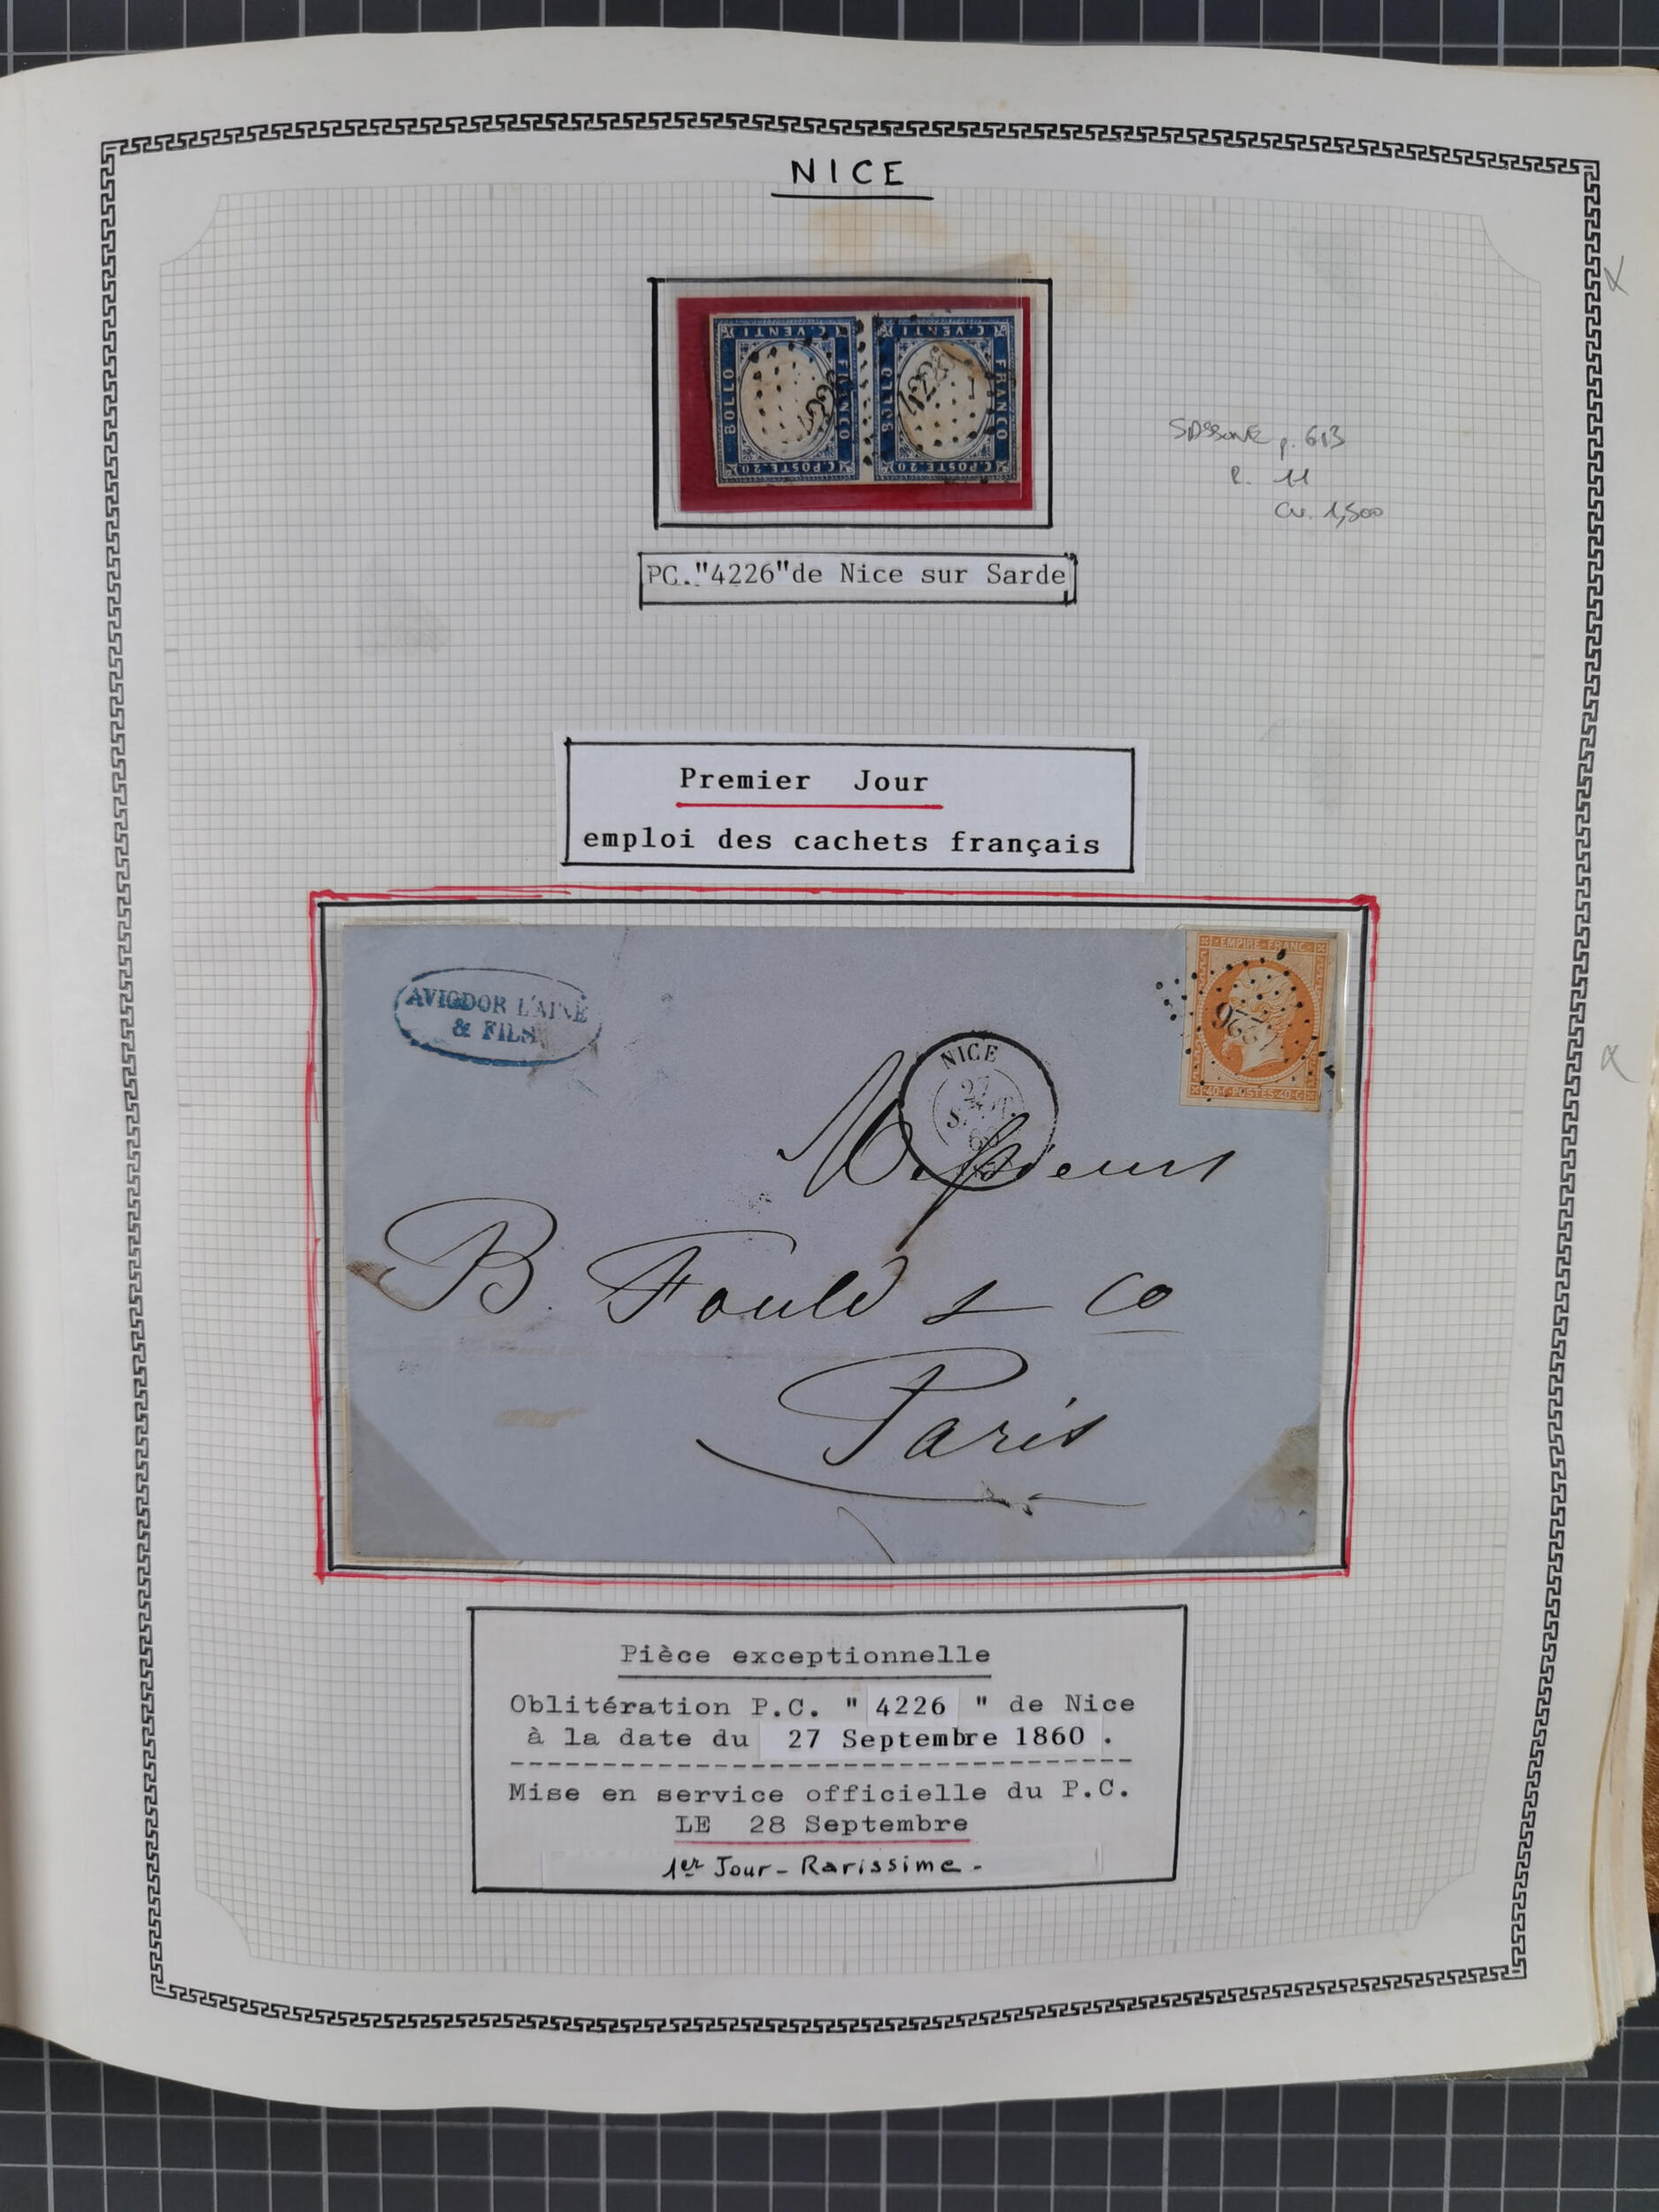 NICE
C. VENTI C. VENTI
BOLLO FRANCO BOLLO FRANCO
C. POSTE 20 C. POSTE 20
4226
SASSONE p. 613
R. 11
Cv. 1,500
PC."4226"de Nice sur Sarde
Premier Jour
emploi des cachets français
AVIGDOR L'AINÉ
& FILS
EMPIRE FRANC
4226
40 C POSTES 40 C
NICE
27
60
Messieurs
B. Fould & Co
Paris
Pièce exceptionnelle
Oblitération P.C. " 4226 " de Nice
à la date du 27 Septembre 1860 .
Mise en service officielle du P.C.
LE 28 Septembre
1er Jour - Rarissime -